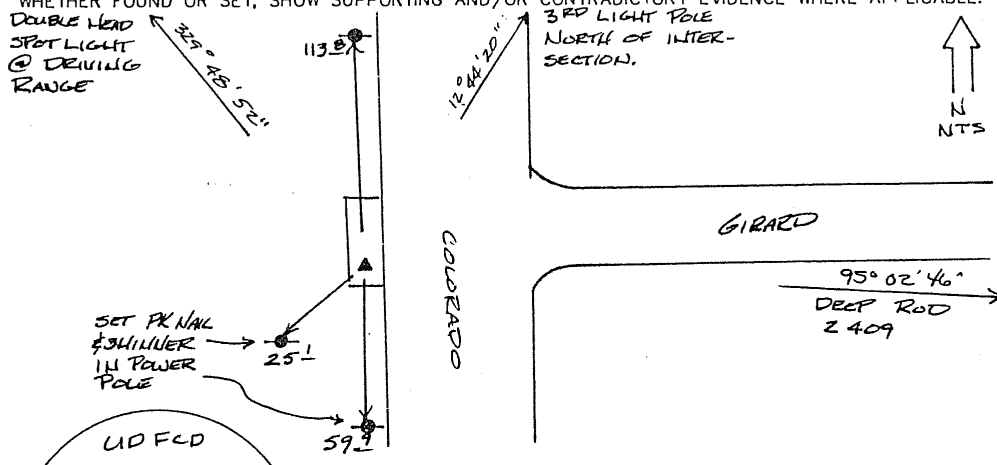 WHETHER FOUND OR SET, SHOW SUPPORTING AND/OR CONTRADICTORY EVIDENCE WHERE APPLICABLE.
DOUBLE HEAD
SPOT LIGHT
@ DRIVING
RANGE
329° 48' 52"
113.8
12° 44' 20"
3RD LIGHT POLE
NORTH OF INTER-
SECTION.
N
NTS
GIRARD
COLORADO
95° 02' 46"
DEEP ROD
2409
SET PK NAIL
& SHINNER
IN POWER
POLE
25.1
59.9
UDFCD